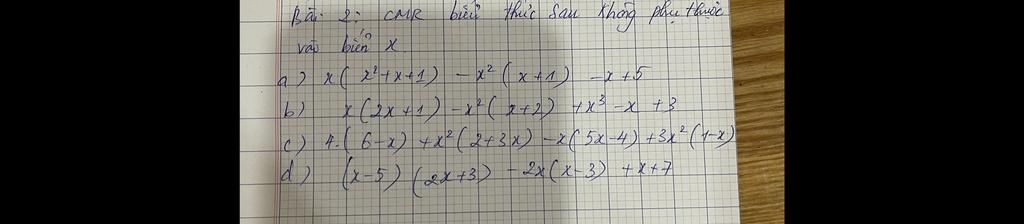 Bài 2: CMR biểu thức sau không phụ thuộc
vào biến x
a) x( x²+x+1) -x²( x+1) -x+5
b) x(2x+1) -x²( x+2) +x³ -x +3
c) 4.( 6-x) +x²( 2+3x) -x( 5x-4) +3x²(1-x)
d) (x-5) (2x+3) -2x(x-3) +x+7